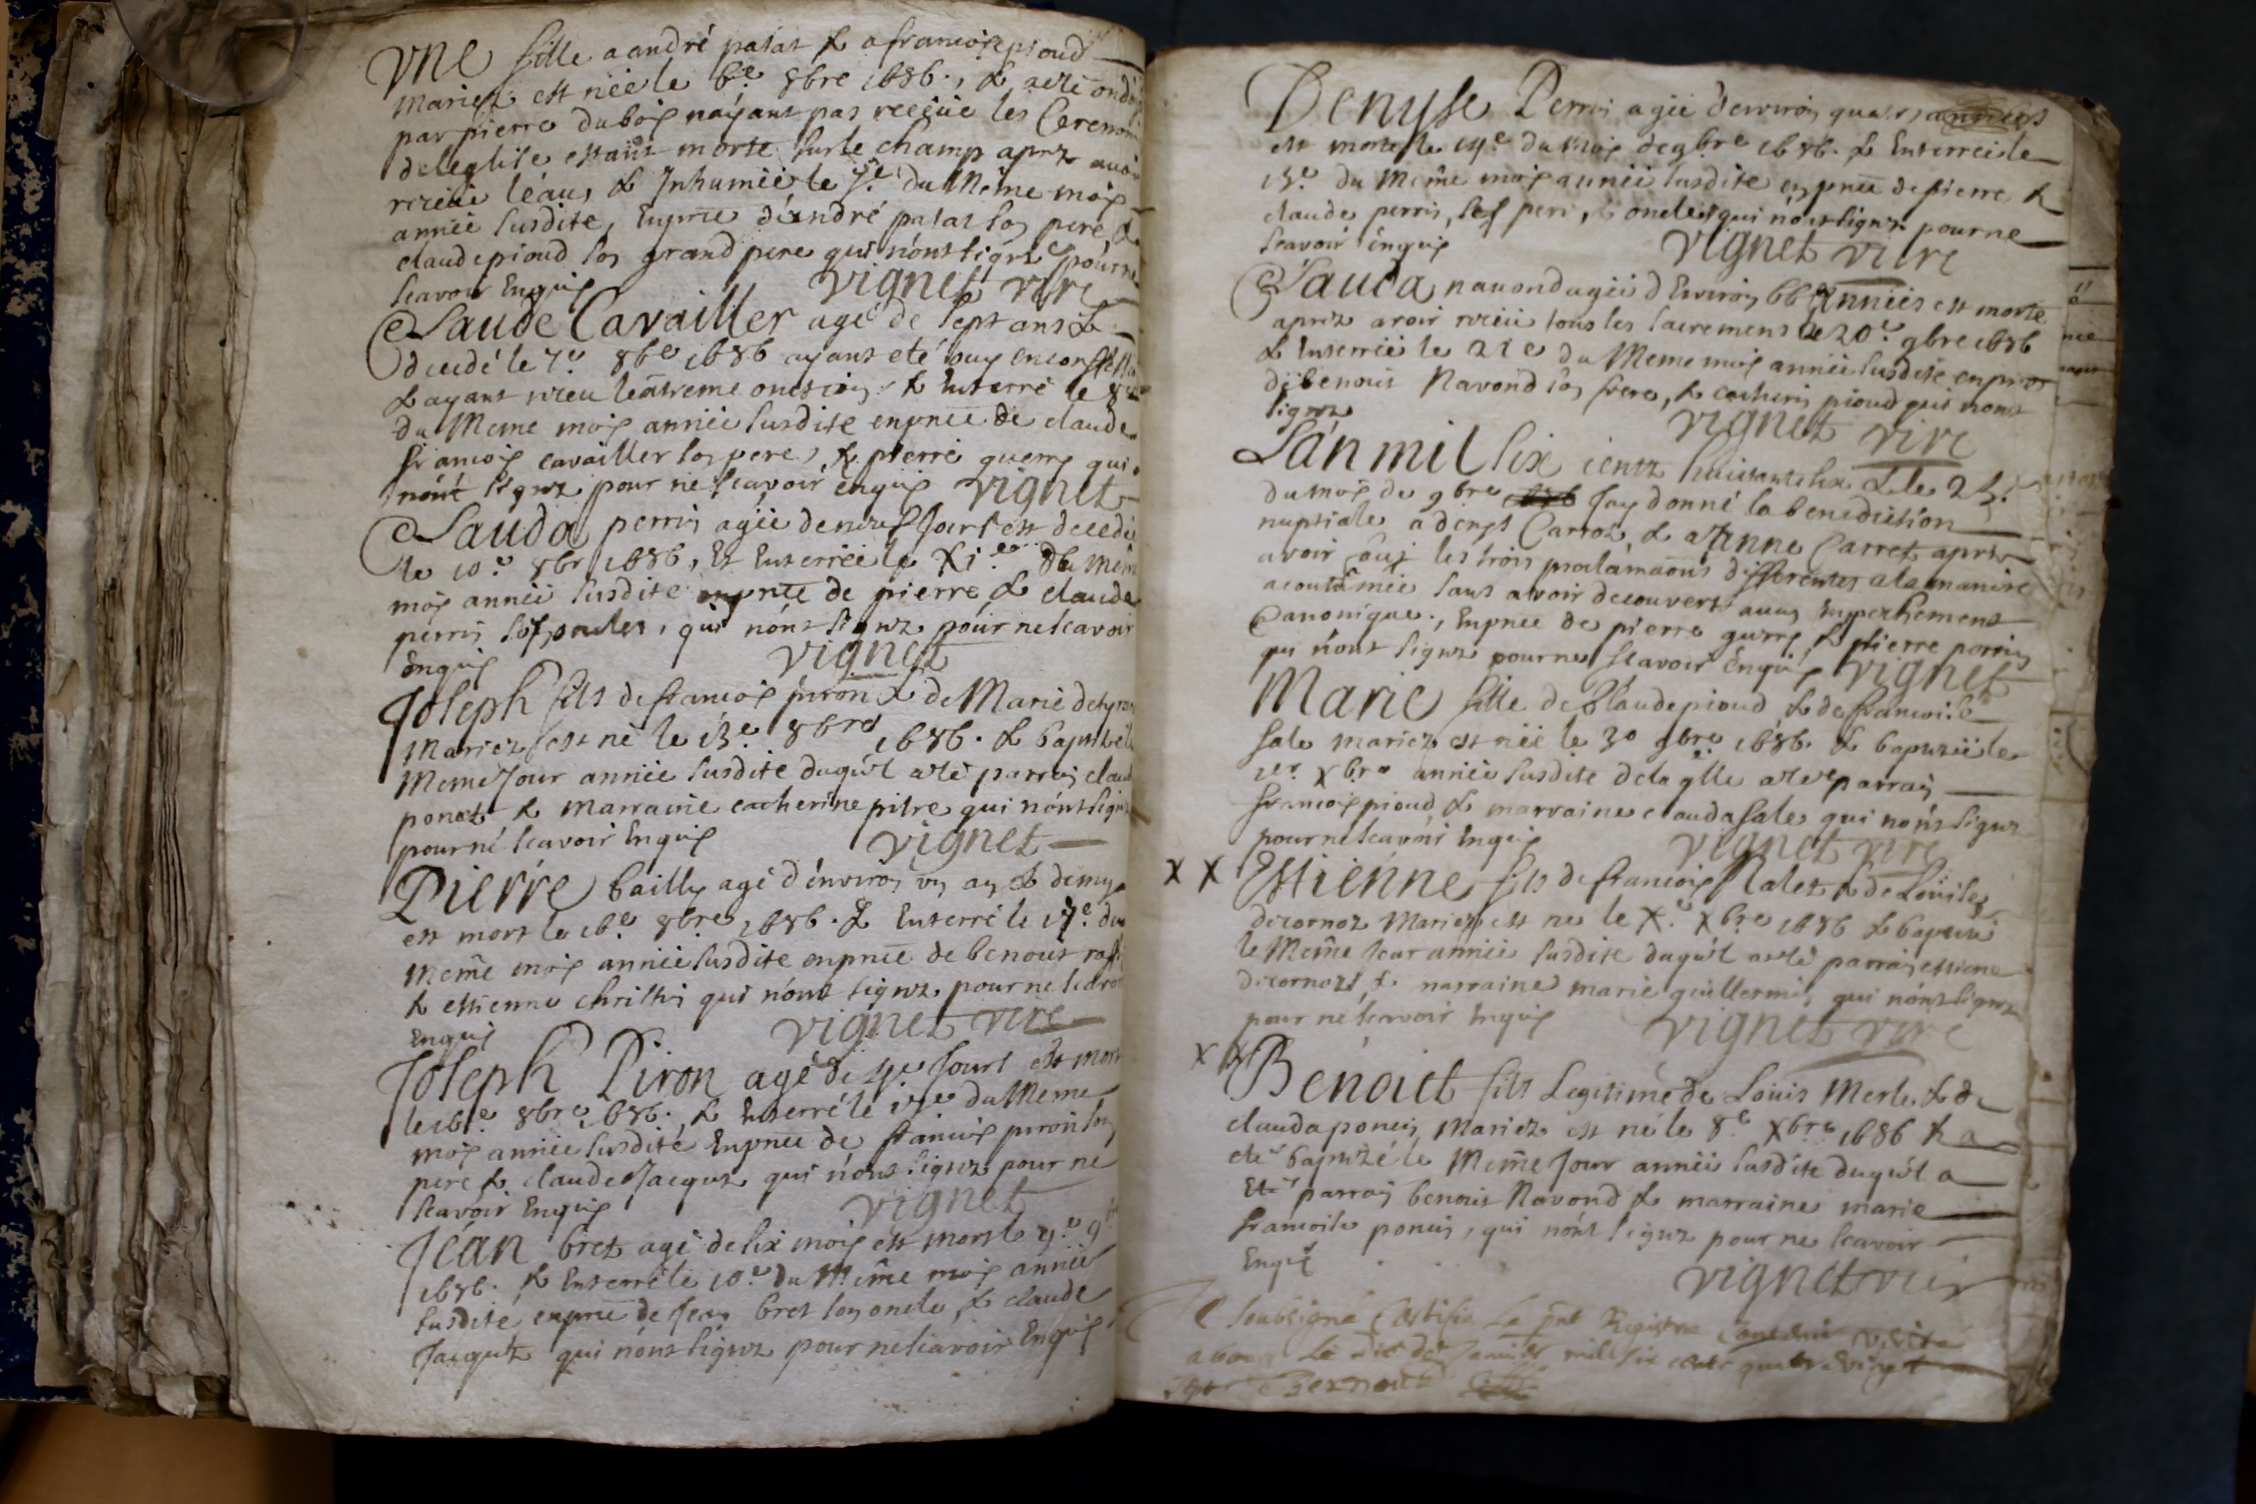 Une fille a andré palat & a francoise pioud
mariez est née le 6.e 8bre 1686., & a eté ondo
par pierre dubois nayant pas receüe les Ceremon
de leglise estant morte sur le champ aprez avoir
receüe léau, & Inhumée le 7.e du Même mois
année susdite, Enpnce déandré palat son pere, &
claude pioud son grand pere qui nónt signé pour ne
scavoir Enquis vignet vire
Claude Cavailler agé de sept ans &
decedé le 7.e 8bre 1686 ayant eté ouy en confess
& ayant receu léxtreme onction & Enterré le 8.e
du Meme mois année susdite enpnce de claude
francois cavailler son pere, & pierre guerre qui
nónt signez pour ne scavoir enquis vignet
Clauda perrin agée de neuf Jours est decedée
le 10.e 8bre 1686, Et Enterrée le xi.e du Mem
mois année susdite enpnce de pierre & claude
perrin ses oncles, qui nónt signez póur ne scavoir
enquis vignet
Joseph fils de francois piron & de Marie
Mariez est né le 13.e 8bre 1686. & baptizé le
Meme Jour année susdite duquél a eté parrain claude
poncet & marraine catherine pitre qui nónt signez
pour né scavoir Enquis vignet
Pierre bailly agé d'énviron un an & demy
est mort le 16.e 8bre 1686. & Enterré le 17.e du
même mois année susdite enpnce de benoit
& estienne christin qui nónt signez pour ne scavoir
Enquis vignet vire
Joseph Piron agé de 4.e Jours est mort
le 16.e 8bre 1686. & Enterré le 17.e du Meme
mois année susdite Enpnce de francois piron son
pere & claude Jacquet qui nónt signez pour ne
scavoir Enquis vignet
Jéan bret agé de six mois est mort le 9.e 9
1686. & Enterré le 10.e du Même mois année
susdite enpnce de Jean bret son oncle, & claude
Jacquet qui nónt signez pour ne scavoir Enquis
Denyse Perrin agée d'environ quatre années
est morte le 14.e du mois de 9bre 1686. & Enterrée le
15.e du Même mois année susdite en pnce de pierre &
claude perrin, ses pere, & oncle qui nónt signez pour ne
scavoir enquis vignet vire
Clauda navond agée d Environ 66 Années est morte
aprez avoir receu tous les sacremens le 20.e 9bre 1686
& Enterrée le 21e du Meme mois année susdite enpnce
de benoit Navond son frere, & catherin pioud qui nont
signez vignet vire
L'án mil six centz huictante six & le 25.
du mois de 9bre Jay donné la benediction
nuptiale a denys Carroz & a Anne Carret aprez
avoir oüy les trois proclamaons differentes a la maniere
acoutumée sans avoir decouvert aucun Empechement
Canonique., Enpnce de pierre guerre, & pierre perrin
qui nónt signez pour ne scavoir Enquis vignet
Marie fille de Claude pioud & de francoise
sale mariez est née le 30 9bre 1686. & baptizée le
1er xbre année susdite de laqlle a eté parrain
francois pioud & marraine clauda sale qui nónt signez
pour ne scavoir Enquis vignet vire
x x Estiénne fils de francois Nalet & de Loüise
decornoz Mariez est né le X.e Xbre 1686 & baptizé
le Même Jour année susdite duquél a eté parrain estiene
decornoz & marraine marie guillermin, qui nónt signez
pour né scavoir Enquis vignet vire
x x Benoict fils Legitime de Loüis Merle, & de
clauda poncin Mariez est né le 8.e Xbre 1686 & a
eté baptizé le Même Jour année susdite duquél a
Eté parrain benoit Navond & marraine marie
francoise poncin, qui nónt signez pour ne scavoir
Enquis vignet vire
soubsigné Certifie Le pnt Registre Contenir verité
mil six cents quatre vingt